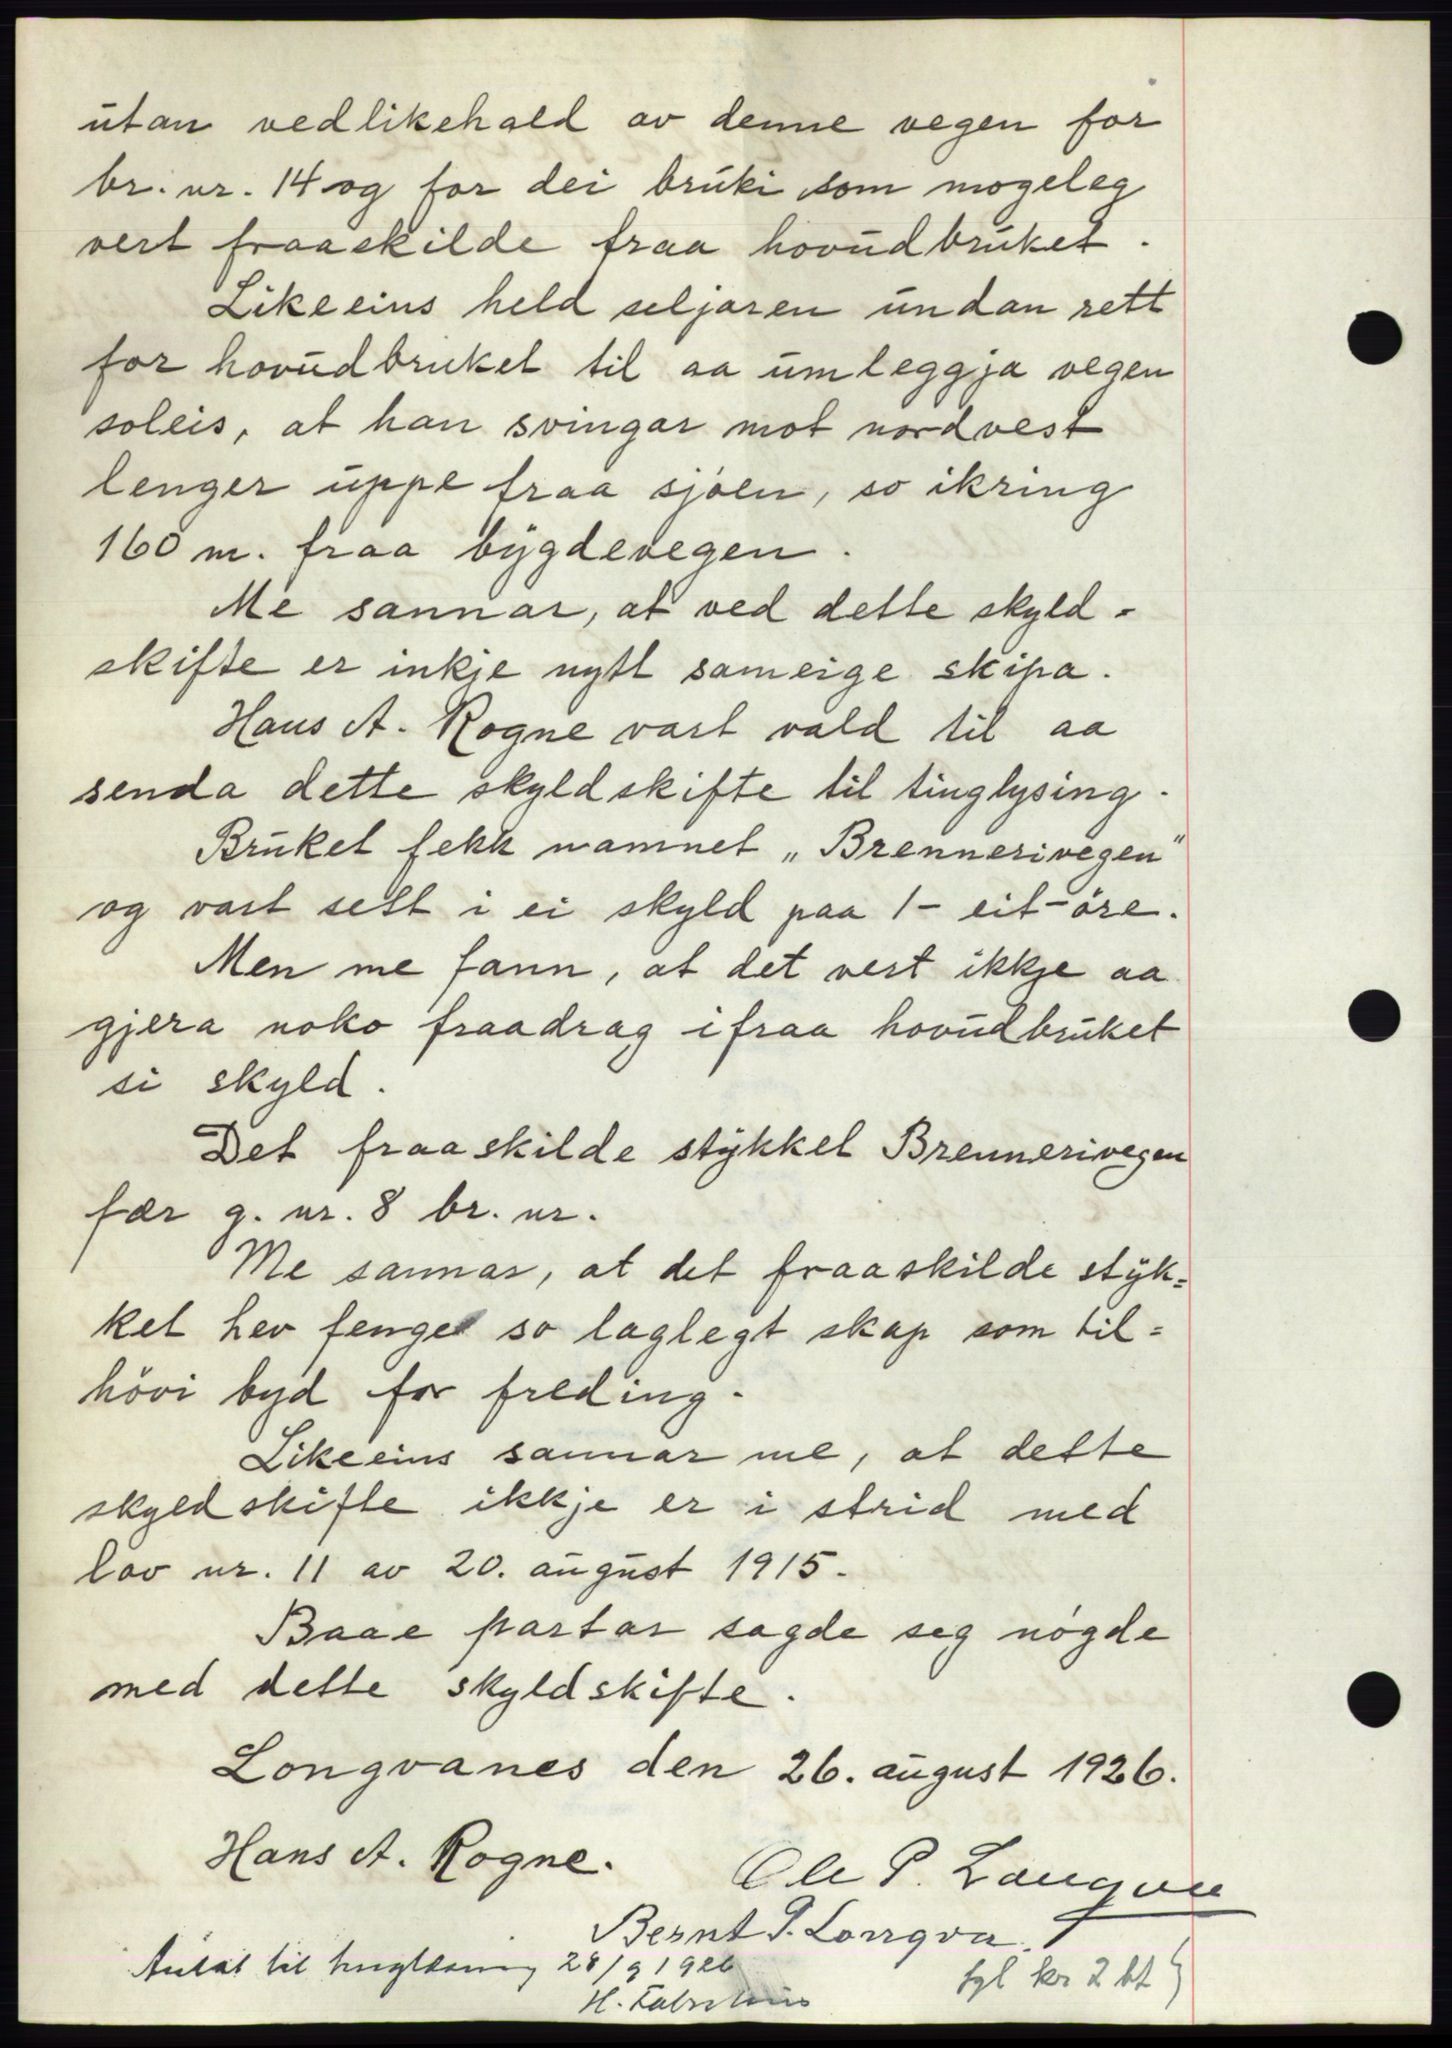 utan vedlikehald av denne vegen for
br. nr. 14 og for dei bruki som mogeleg
vert fraaskilde fraa hovudbruket.
Likeeins held seljaren undan rett
for hovudbruket til aa umleggja vegen
soleis, at han svingar mot nordvest
lenger uppe fraa sjøen, so ikring
160 m. fraa bygdevegen.
Me sannar, at ved dette skyld-
skifte er inkje nytt sameige skipa.
Hans A. Rogne vart vald til aa
senda dette skyldskifte til tinglysing.
Bruket fekk namnet „Brennerivegen"
og vart sett i ei skyld paa 1- eit-öre.
Men me fann, at det vert ikkje aa
gjera noko fraadrag ifraa hovudbruket
si skyld.
Det fraaskilde stykket Brennerivegen
fær g. nr. 8 br. nr.
Me sannar, at det fraaskilde styk=
ket hev fenge so laglegt skap som til=
hövi byd for freding.
Likeeins sannar me, at dette
skyldskifte ikkje er i strid med
lov nr. 11 av 20. august 1915.
Baae partar sagde seg nøgde
med dette skyldskifte.
Longvanes den 26. august 1926.
Hans A. Rogne.
Ole P. Langva
Bernt P. Longva.
til 28/9 1926
kr 2
H.